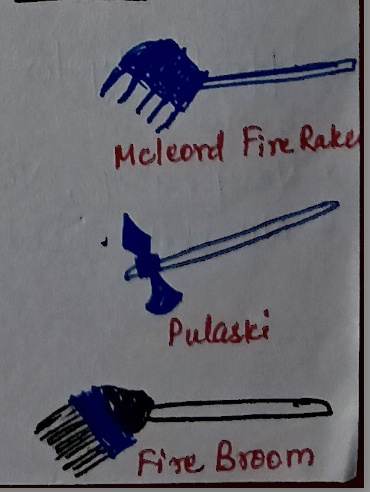 Mcleord Fire Rake
Pulaski
Fire Broom